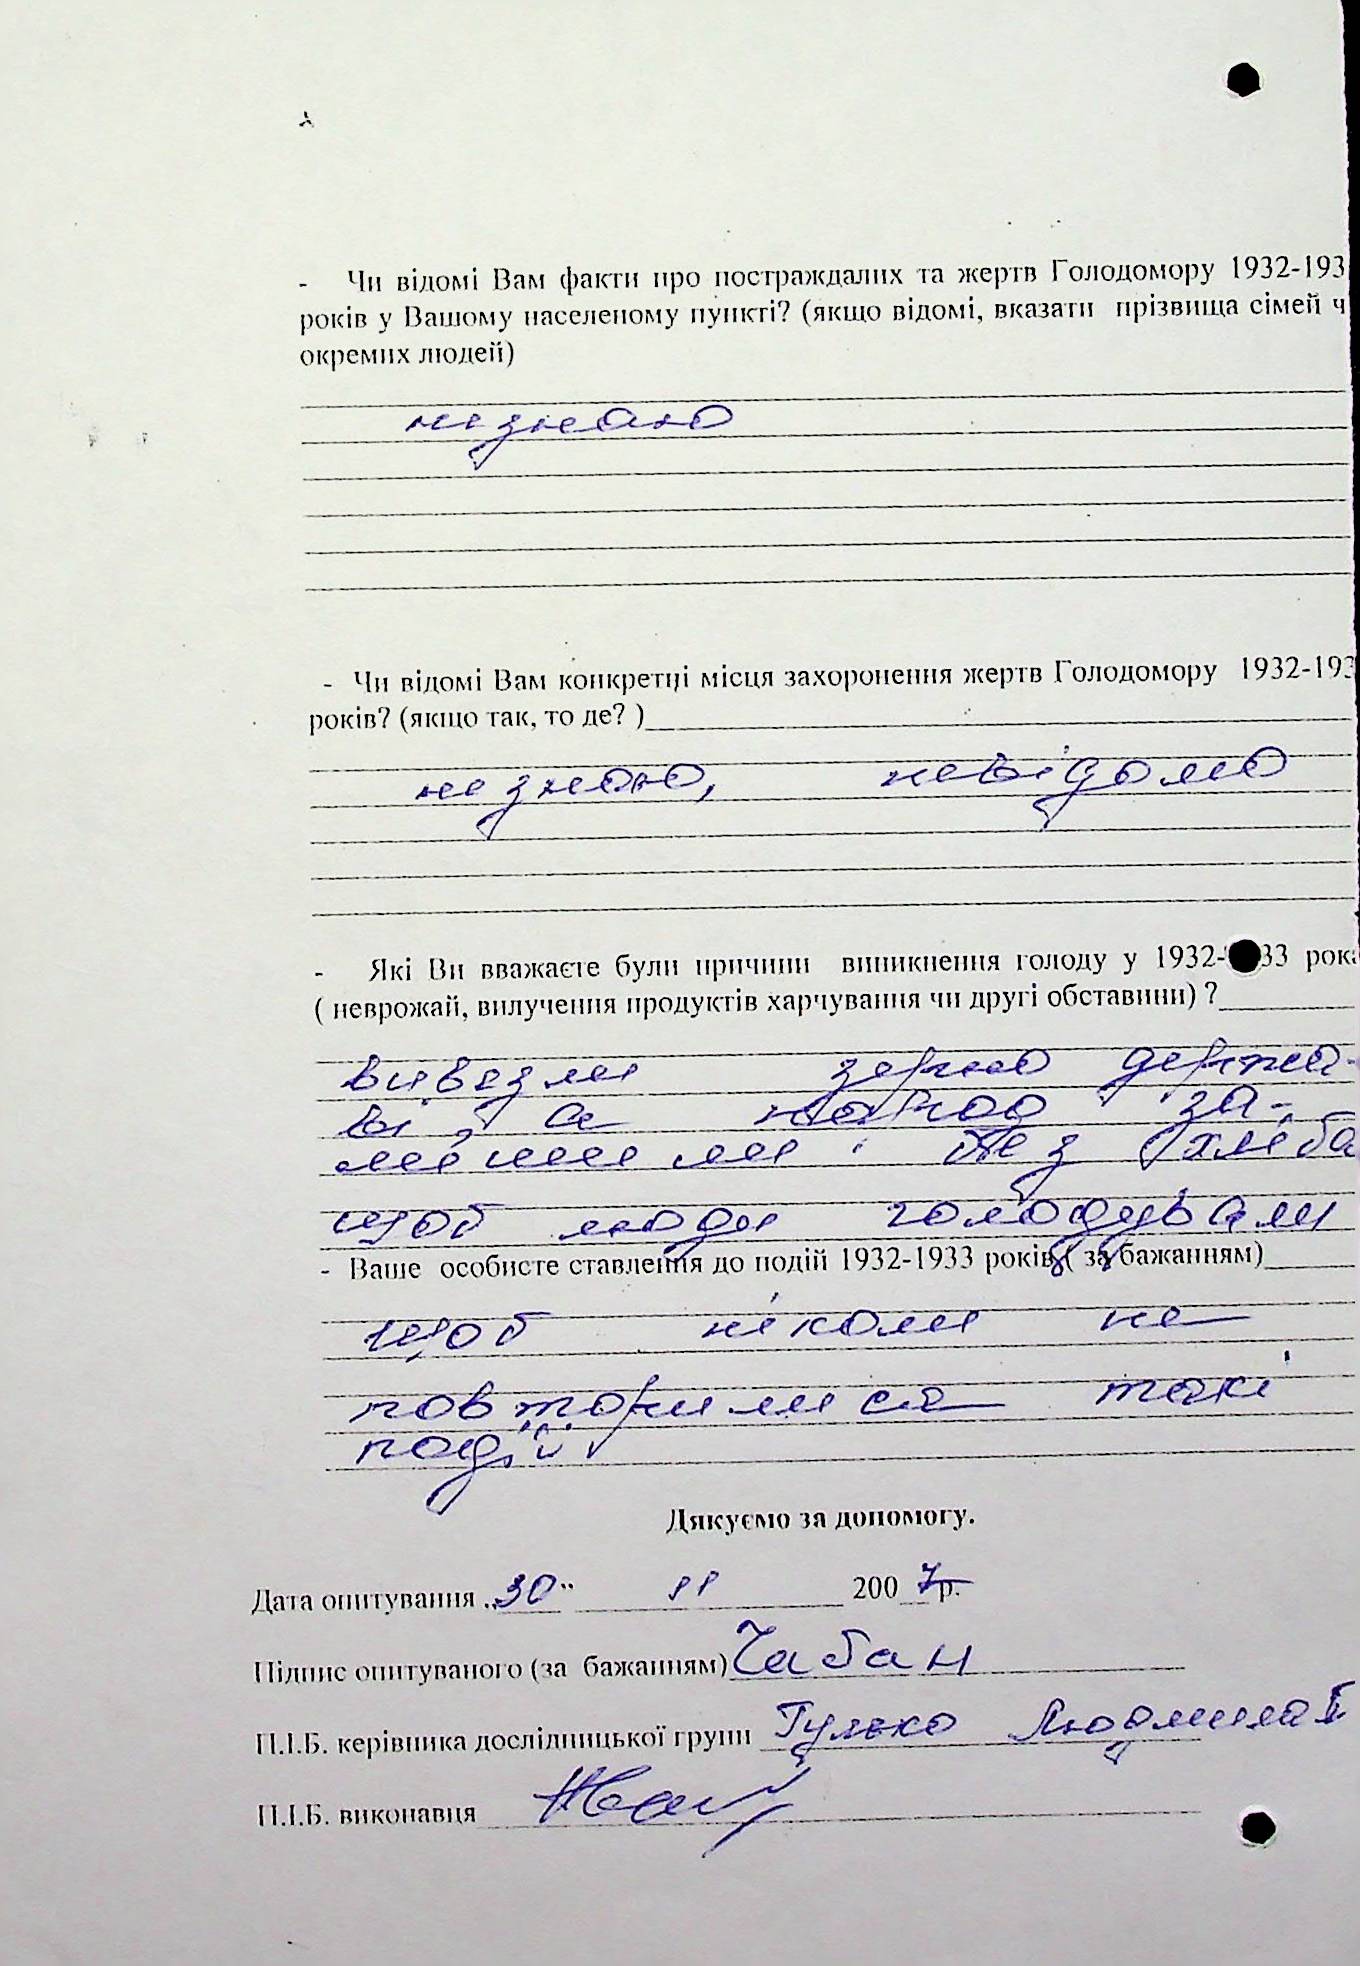 - Чи відомі Вам факти про постраждалих та жертв Голодомору 1932-193
років у Вашому населеному пункті? (якщо відомі, вказати прізвища сімей ч
окремих людей)
не знаю
- Чи відомі Вам конкретні місця захоронення жертв Голодомору 1932-193
років? (якщо так, то де? )
не знаю, невідомо
- Які Ви вважаєте були причини виникнення голоду у 1932- 33 рок
( неврожай, вилучення продуктів харчування чи другі обставини) ?
вивезли зерно держа-
ві, а народ за-
лишили без хліба
щоб люди голодували
- Ваше особисте ставлення до подій 1932-1933 років ( за бажанням)
щоб ніколи не
повторилися такі
події
Дякуємо за допомогу.
Дата опитування „30” 11 2007р.
Підпис опитуваного (за бажанням) Чабан
П.І.Б. керівника дослідницької групи Гулько Людмила
П.І.Б. виконавця